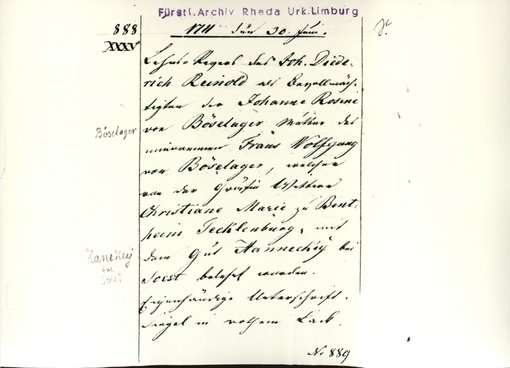 Fürstl. Archiv Rheda Urk. Limburg
888
XXXV
1711 den 30. Juni.
Lehns-Revers des Joh. Diede-
rich Reinold als Bevollmäch-
tigten der Johanne Rosine
von Böselager Mutter des
minorennen Frans Wolfgang
von Böselager, welcher
von der Gräfin Wittwe
Christiane Marie zu Bent-
heim Tecklenburg, mit
dem Gut Hannecky bei
Soest belehnt worden.
Eigenhändige Unterschrift.
Siegel in rothem Lack.
No 889
Böselager
Soest